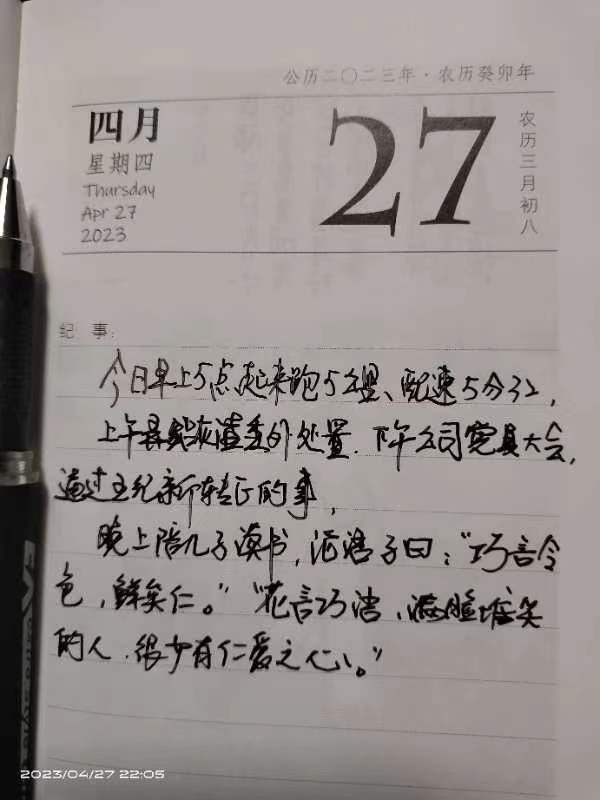 公历二〇二三年·农历癸卯年
四月
星期四
Thursday
Apr 27
2023
27
农历三月初八
纪 事:
今日早上5点起来跑5公里、配速5分32,
上午县灰渣委外处置.下午公司党员大会,
通过王纪新转正的事,
晚上陪儿子读书,论语子曰:"巧言令
色,鲜矣仁。""花言巧语、满脸堆笑
的人.很少有仁爱之心。"
2023/04/27 22:05